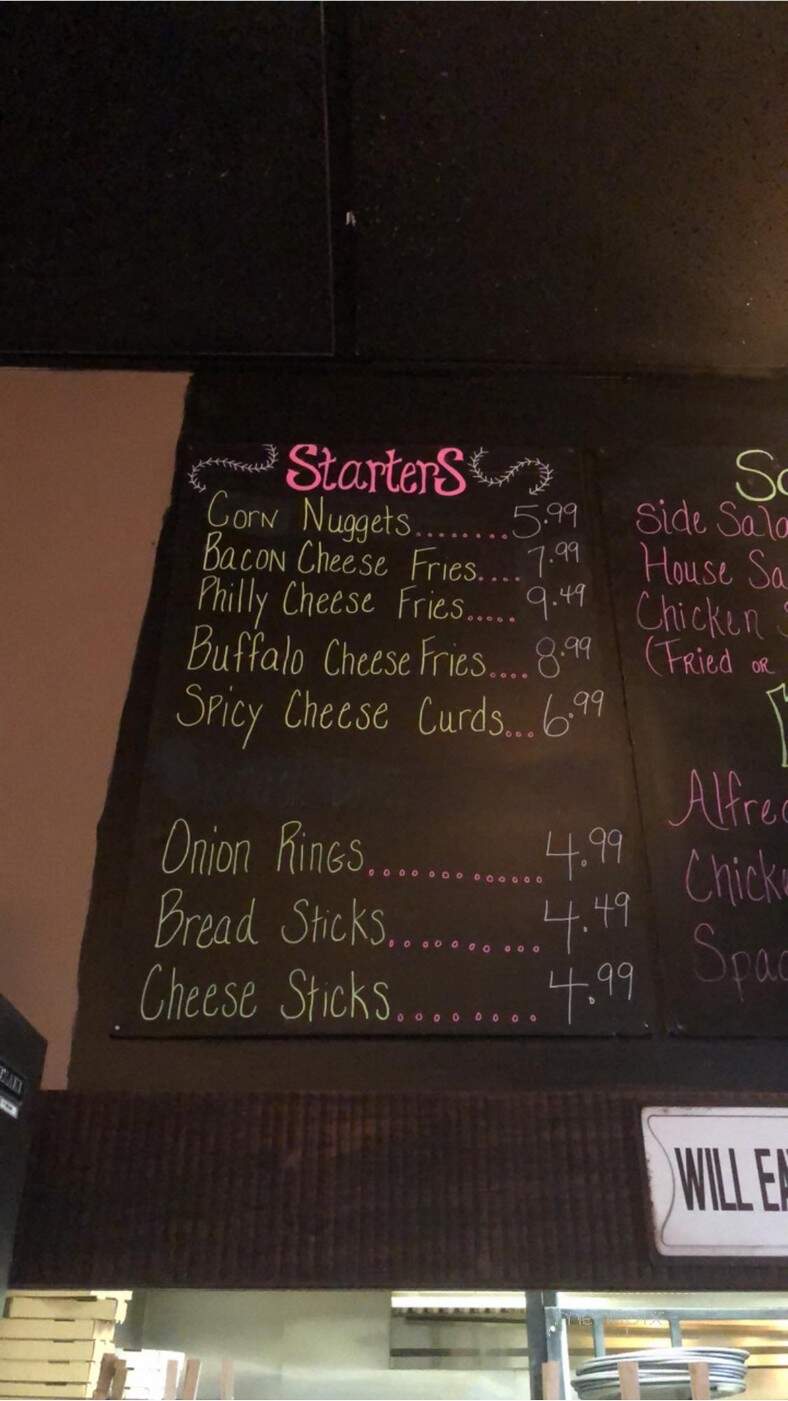 Starters
Corn Nuggets........5.99
Bacon Cheese Fries....7.99
Philly Cheese Fries.....9.49
Buffalo Cheese Fries....8.99
Spicy Cheese Curds...6.99
Onion Rings.............4.99
Bread Sticks..........4.49
Cheese Sticks........4.99
Side
House
Chicken
(Fried or
WILL